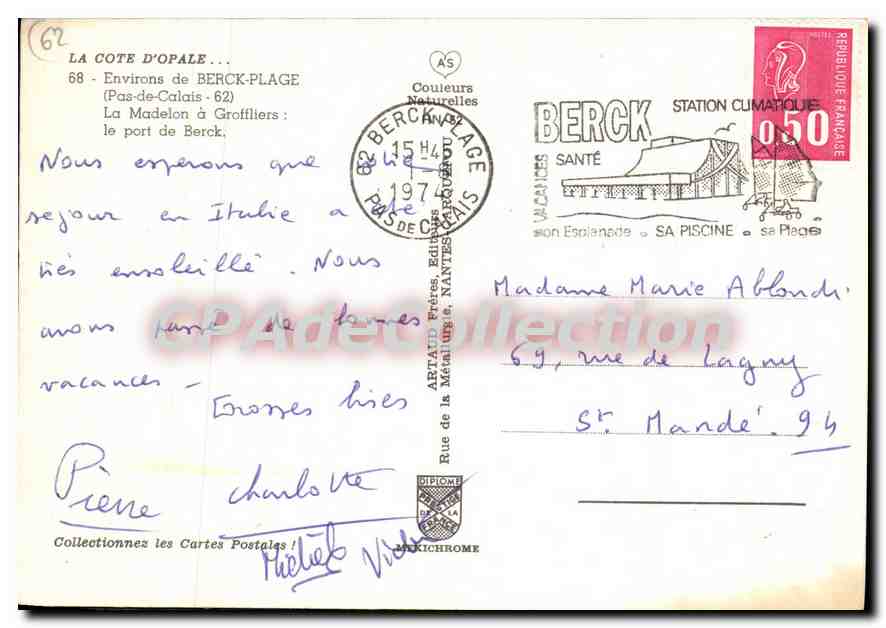 62
LA COTE D'OPALE...
68 - Environs de BERCK-PLAGE
(Pas-de-Calais - 62)
La Madelon à Groffliers :
le port de Berck.
Nous esperons que votre
sejour en Italie a été
très ensoleillé. Nous
avons passé de bonnes
vacances -
Grosses bises
Pierre
Charlotte
Michèle
Collectionnez les Cartes Postales !
AS
Couleurs
Naturelles
62 BERCK PLAGE
15H45
1974
PAS DE CALAIS
ARTAUD Frères, Editeurs
Rue de la Métallurgie, NANTES-CARQUEFOU
DIPLOME
PRESTIGE
DE LA
FRANCE
MEXICHROME
BERCK
STATION CLIMATIQUE
VACANCES
SANTÉ
son Esplanade SA PISCINE sa Plage
POSTES
REPUBLIQUE FRANÇAISE
0,50
Madame Marie Ablondi
69, rue de Lagny
St Mandé. 94
CPAdeCollection